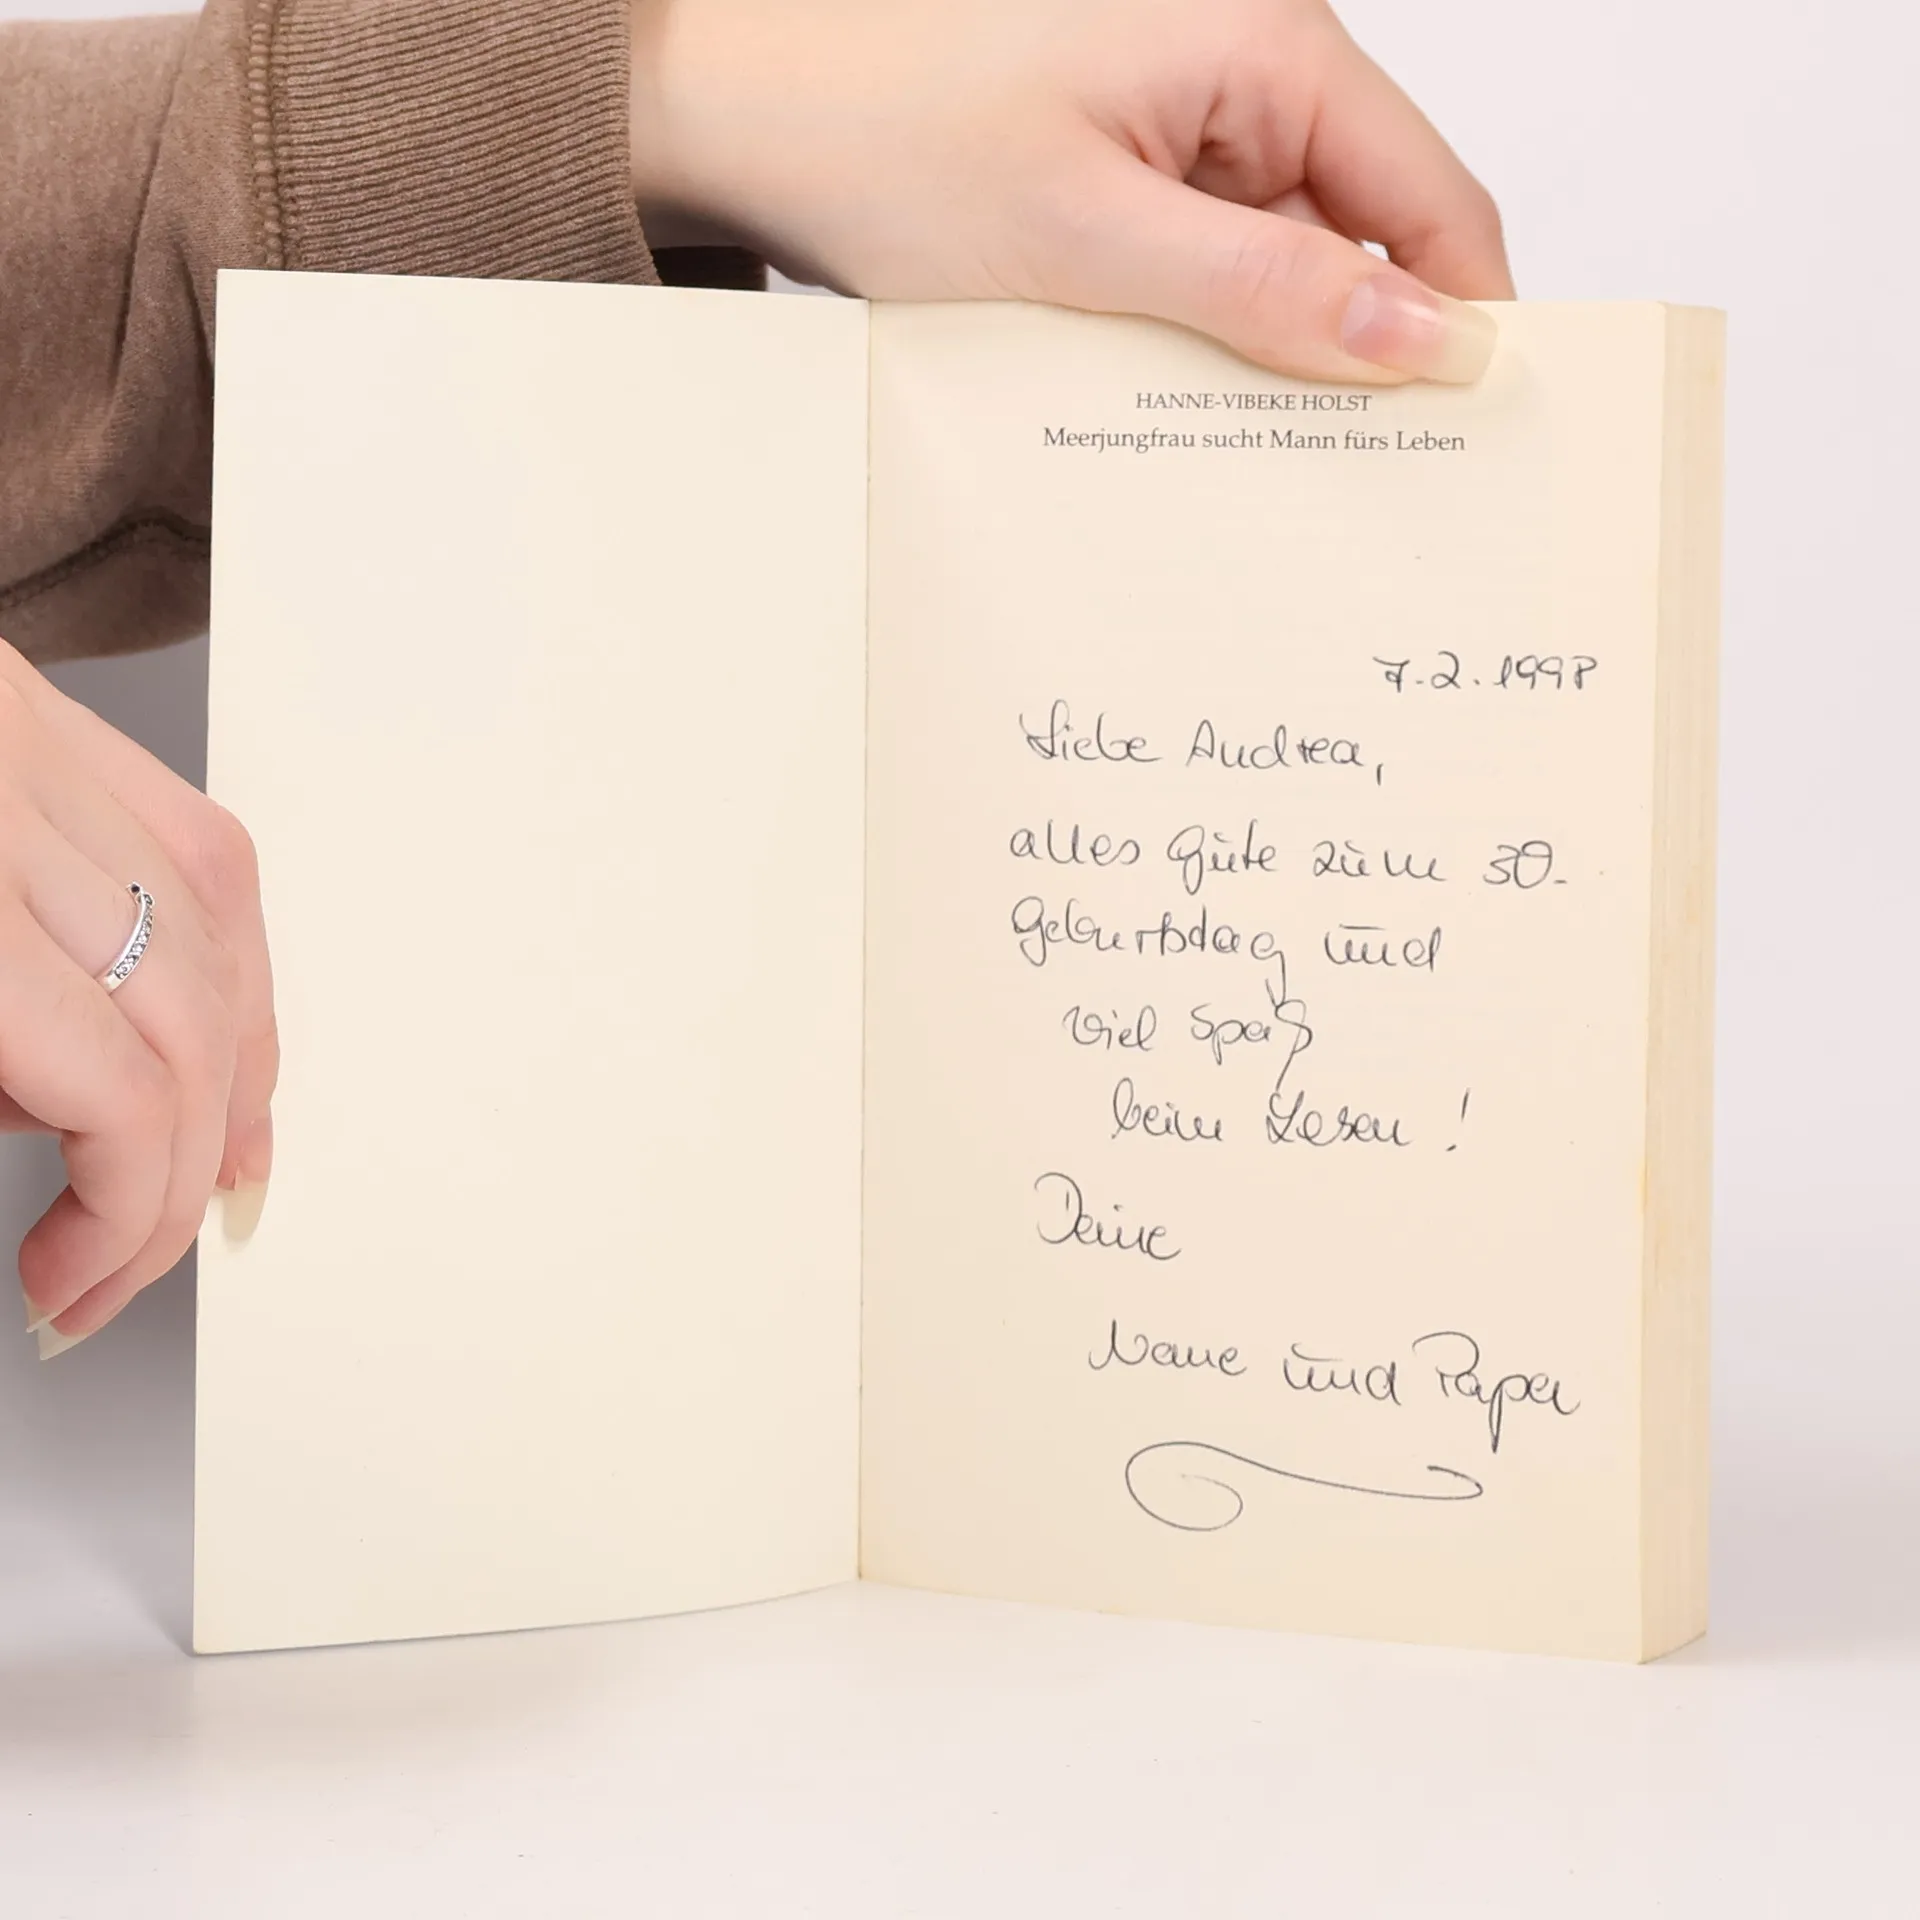 HANNE-VIBEKE HOLST
Meerjungfrau sucht Mann fürs Leben
7.2.1998
Liebe Andrea,
alles Gute zum 30.
Geburtstag und
viel Spaß
beim Lesen!
Deine
und Papa